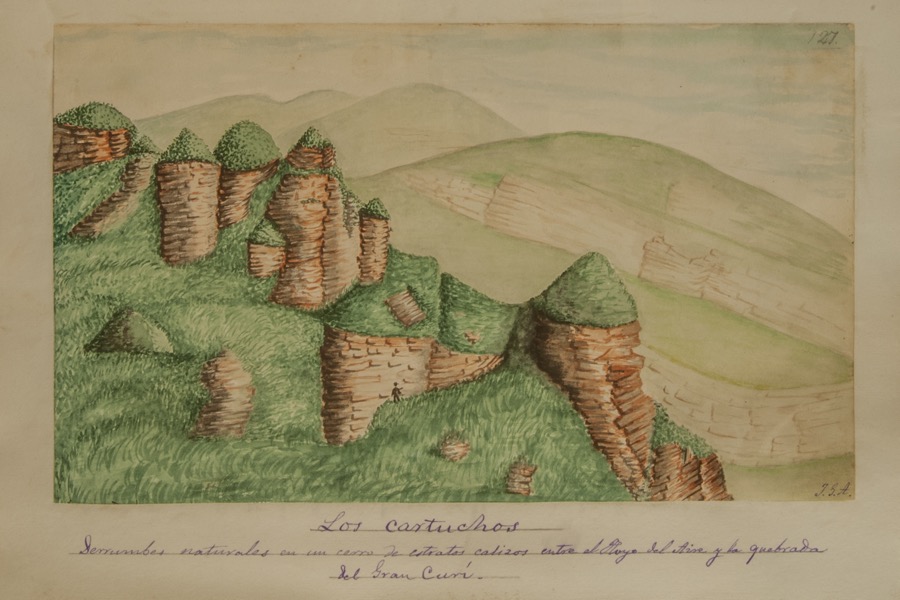 127.
J. S. A.
Los cartuchos
Derrumbes naturales en un cerro de estratos calizos entre el Hoyo del Aire y la quebrada
del Gran Curí.